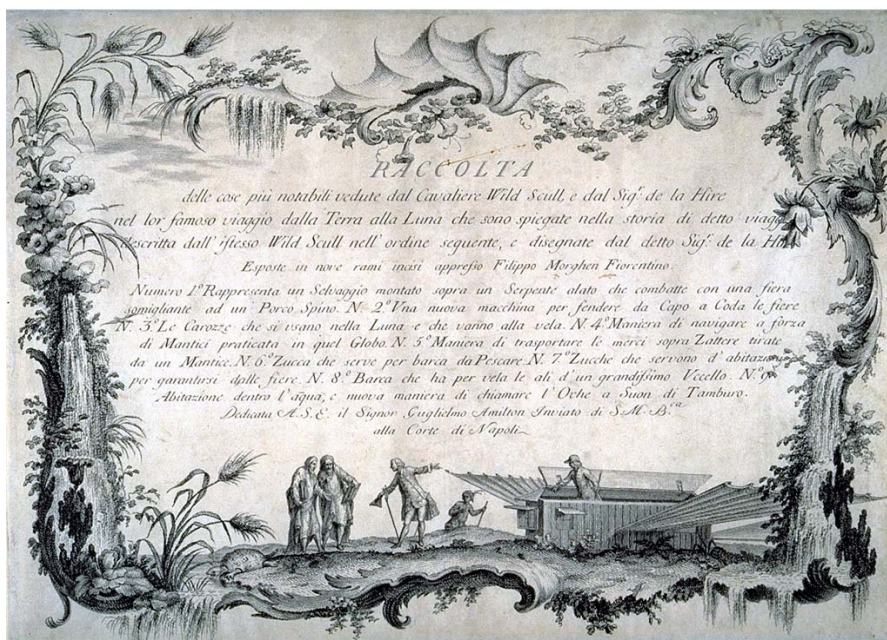 RACCOLTA
delle cose più notabili vedute dal Cavaliere Wild Scull, e dal Sigr. de la Hire
nel lor famoso viaggio dalla Terra alla Luna che sono spiegate nella storia di detto viagg
descritta dall' istesso Wild Scull nell' ordine seguente, e disegnate dal detto Sigr. de la Hire
Esposte in nove rami incisi appresso Filippo Morghen Fiorentino.
Numero 1º Rappresenta un Selvaggio montato sopra un Serpente alato che combatte con una fiera
somigliante ad un' Porco Spino. N. 2º Vna nuova macchina per fendere da Capo a Coda le fiere
N. 3º Le Carozze che si vsano nella Luna e che vanno alla vela. N. 4º Maniera di navigare a forza
di Mantici praticata in quel Globo. N. 5º Maniera di trasportare le merci sopra Zattere tirate
da un Mantice. N. 6º Zucca che serve per barca da Pescare. N. 7º Zucche che servono d' abitazione
per garantirsi dalle fiere. N. 8º Barca che ha per vela le ali d' un grandissimo Vccello. N. 9º
Abitazione dentro l' aqua, e nuova maniera di chiamare l' Oche a Suon di Tamburo.
Dedicata A. S. E. il Signor Guglielmo Amilton Inviato di S. M. B.ca
alla Corte di Napoli